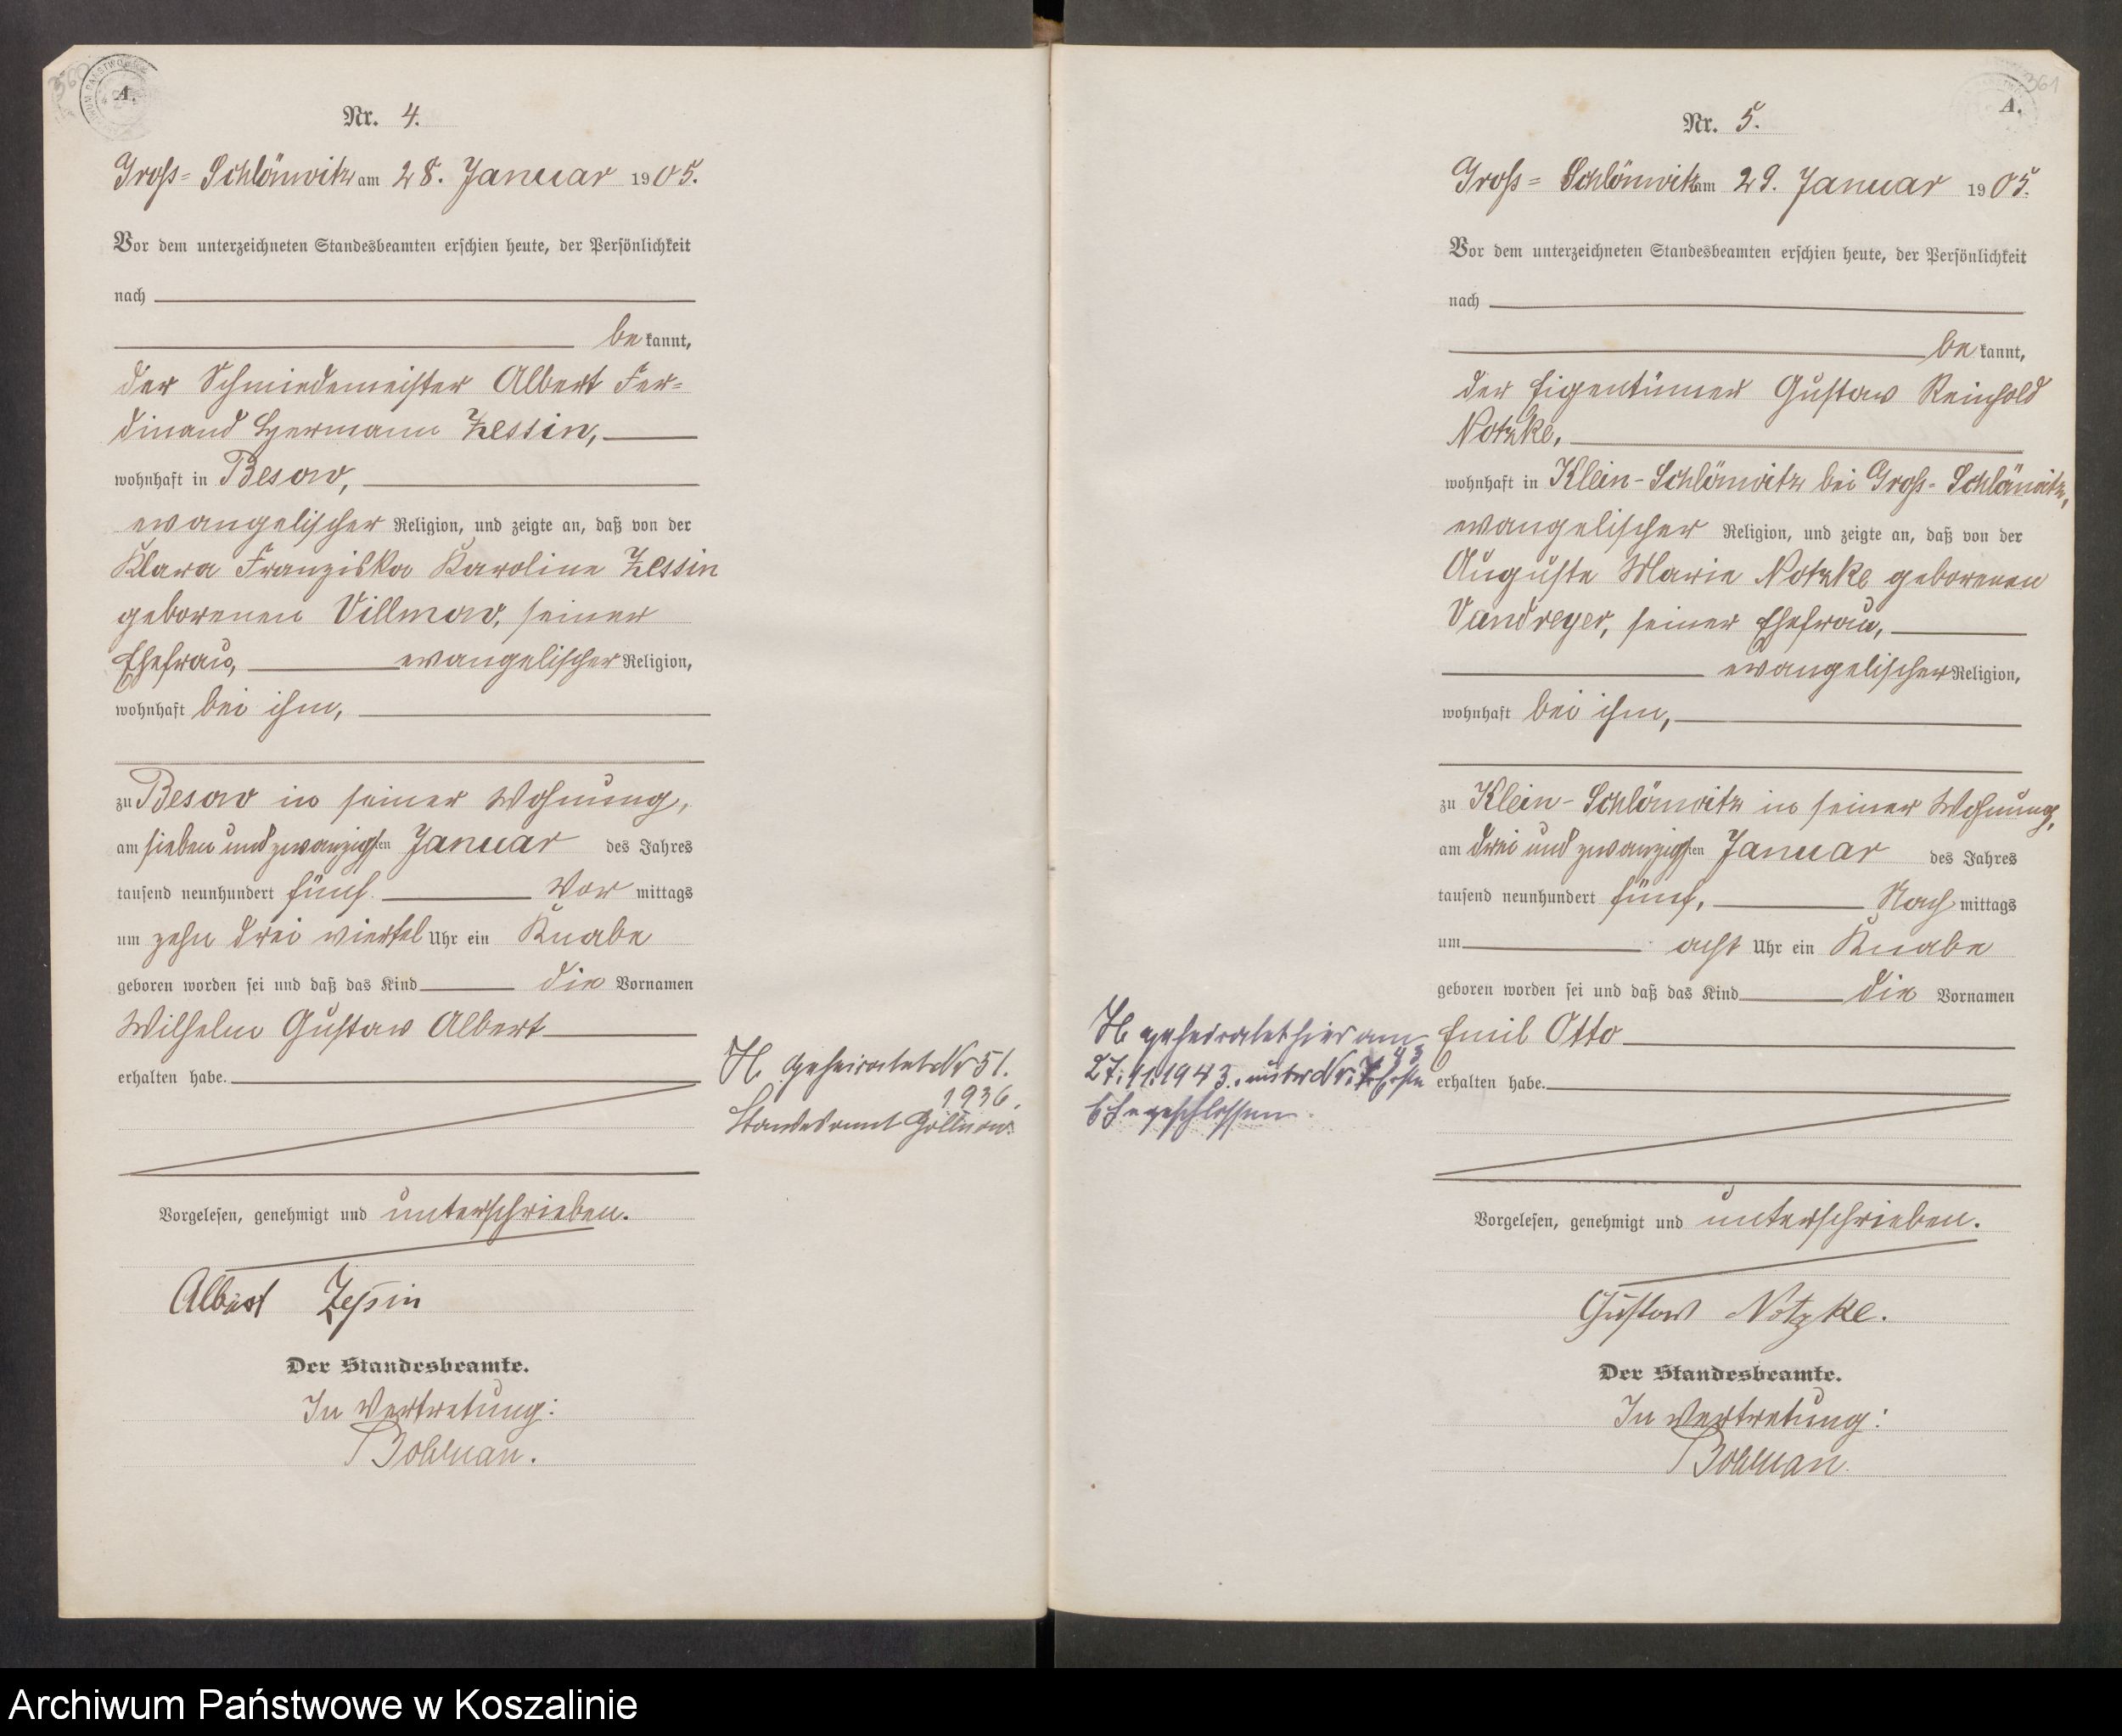 360
A.
Nr. 4.
Gross-Schlönwitz am 28. Januar 1905.
Vor dem unterzeichneten Standesbeamten erschien heute, der Persönlichkeit
nach
bekannt,
der Schmiedemeister Albert Fer=
dinand Hermann Zessin,
wohnhaft in Besow,
evangelischer Religion, und zeigte an, daß von der
Klara Franziska Karoline Zessin
geborenen Villmow, seiner
Ehefrau, evangelischer Religion,
wohnhaft bei ihm,
zu Besow in seiner Wohnung,
am sieben und zwanzigsten Januar des Jahres
tausend neunhundert fünf Vormittags
um zehn drei viertel Uhr ein Knabe
geboren worden sei und daß das Kind die Vornamen
Wilhelm Gustav Albert
erhalten habe.
H. geheiratet Nr 51.
1936.
Standesamt Gollnow.
Vorgelesen, genehmigt und unterschrieben.
Albert Zessin
Der Standesbeamte.
In Vertretung:
361
A.
Nr. 5.
Gross-Schlönwitz am 29. Januar 1905.
Vor dem unterzeichneten Standesbeamten erschien heute, der Persönlichkeit
nach
bekannt,
der Eigentümer Gustav Reinhold
Notzke,
wohnhaft in Klein-Schlönwitz bei Gross-Schlönwitz,
evangelischer Religion, und zeigte an, daß von der
Auguste Marie Notzke geborenen
Vandreyer, seiner Ehefrau,
evangelischer Religion,
wohnhaft bei ihm,
zu Klein-Schlönwitz in seiner Wohnung,
am drei und zwanzigsten Januar des Jahres
tausend neunhundert fünf, Nachmittags
um acht Uhr ein Knabe
geboren worden sei und daß das Kind die Vornamen
Emil Otto
erhalten habe.
H geheiratet hier am
27.11.1943. unter Nr. erste
Ehe geschlossen.
Vorgelesen, genehmigt und unterschrieben.
Gustav Notzke.
Der Standesbeamte.
In Vertretung:
Archiwum Państwowe w Koszalinie